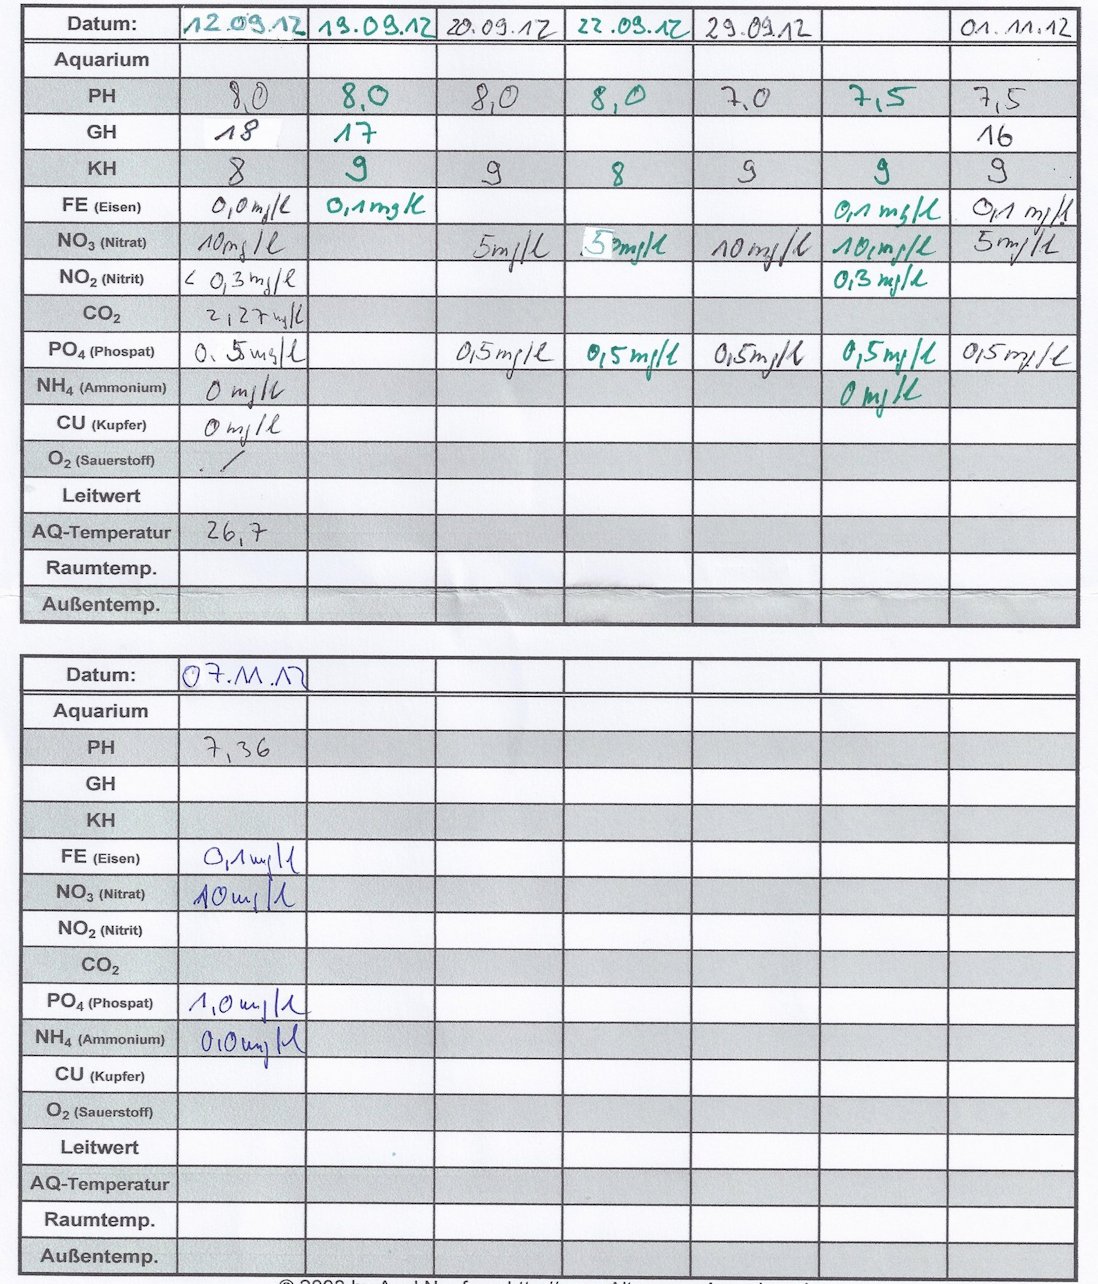 Datum: 12.09.12 19.09.12 20.09.12 22.09.12 29.09.12 01.11.12
Aquarium
PH 8,0 8,0 8,0 8,0 7,0 7,5 7,5
GH 18 17 16
KH 8 9 9 8 9 9 9
FE (Eisen) 0,0mg/l 0,1mg/l 0,1mg/l 0,1 mg/l
NO₃ (Nitrat) 10mg/l 5mg/l 5mg/l 10mg/l 10mg/l 5mg/l
NO₂ (Nitrit) < 0,3mg/l 0,3mg/l
CO₂ 2,27mg/l
PO₄ (Phospat) 0.5mg/l 0,5mg/l 0,5mg/l 0,5mg/l 0,5mg/l 0,5mg/l
NH₄ (Ammonium) 0mg/l 0mg/l
CU (Kupfer) 0mg/l
O₂ (Sauerstoff) ./
Leitwert
AQ-Temperatur 26,7
Raumtemp.
Außentemp.
Datum: 07.11.12
Aquarium
PH 7,36
GH
KH
FE (Eisen) 0,1mg/l
NO₃ (Nitrat) 10mg/l
NO₂ (Nitrit)
CO₂
PO₄ (Phospat) 1,0mg/l
NH₄ (Ammonium) 0,0mg/l
CU (Kupfer)
O₂ (Sauerstoff)
Leitwert
AQ-Temperatur
Raumtemp.
Außentemp.